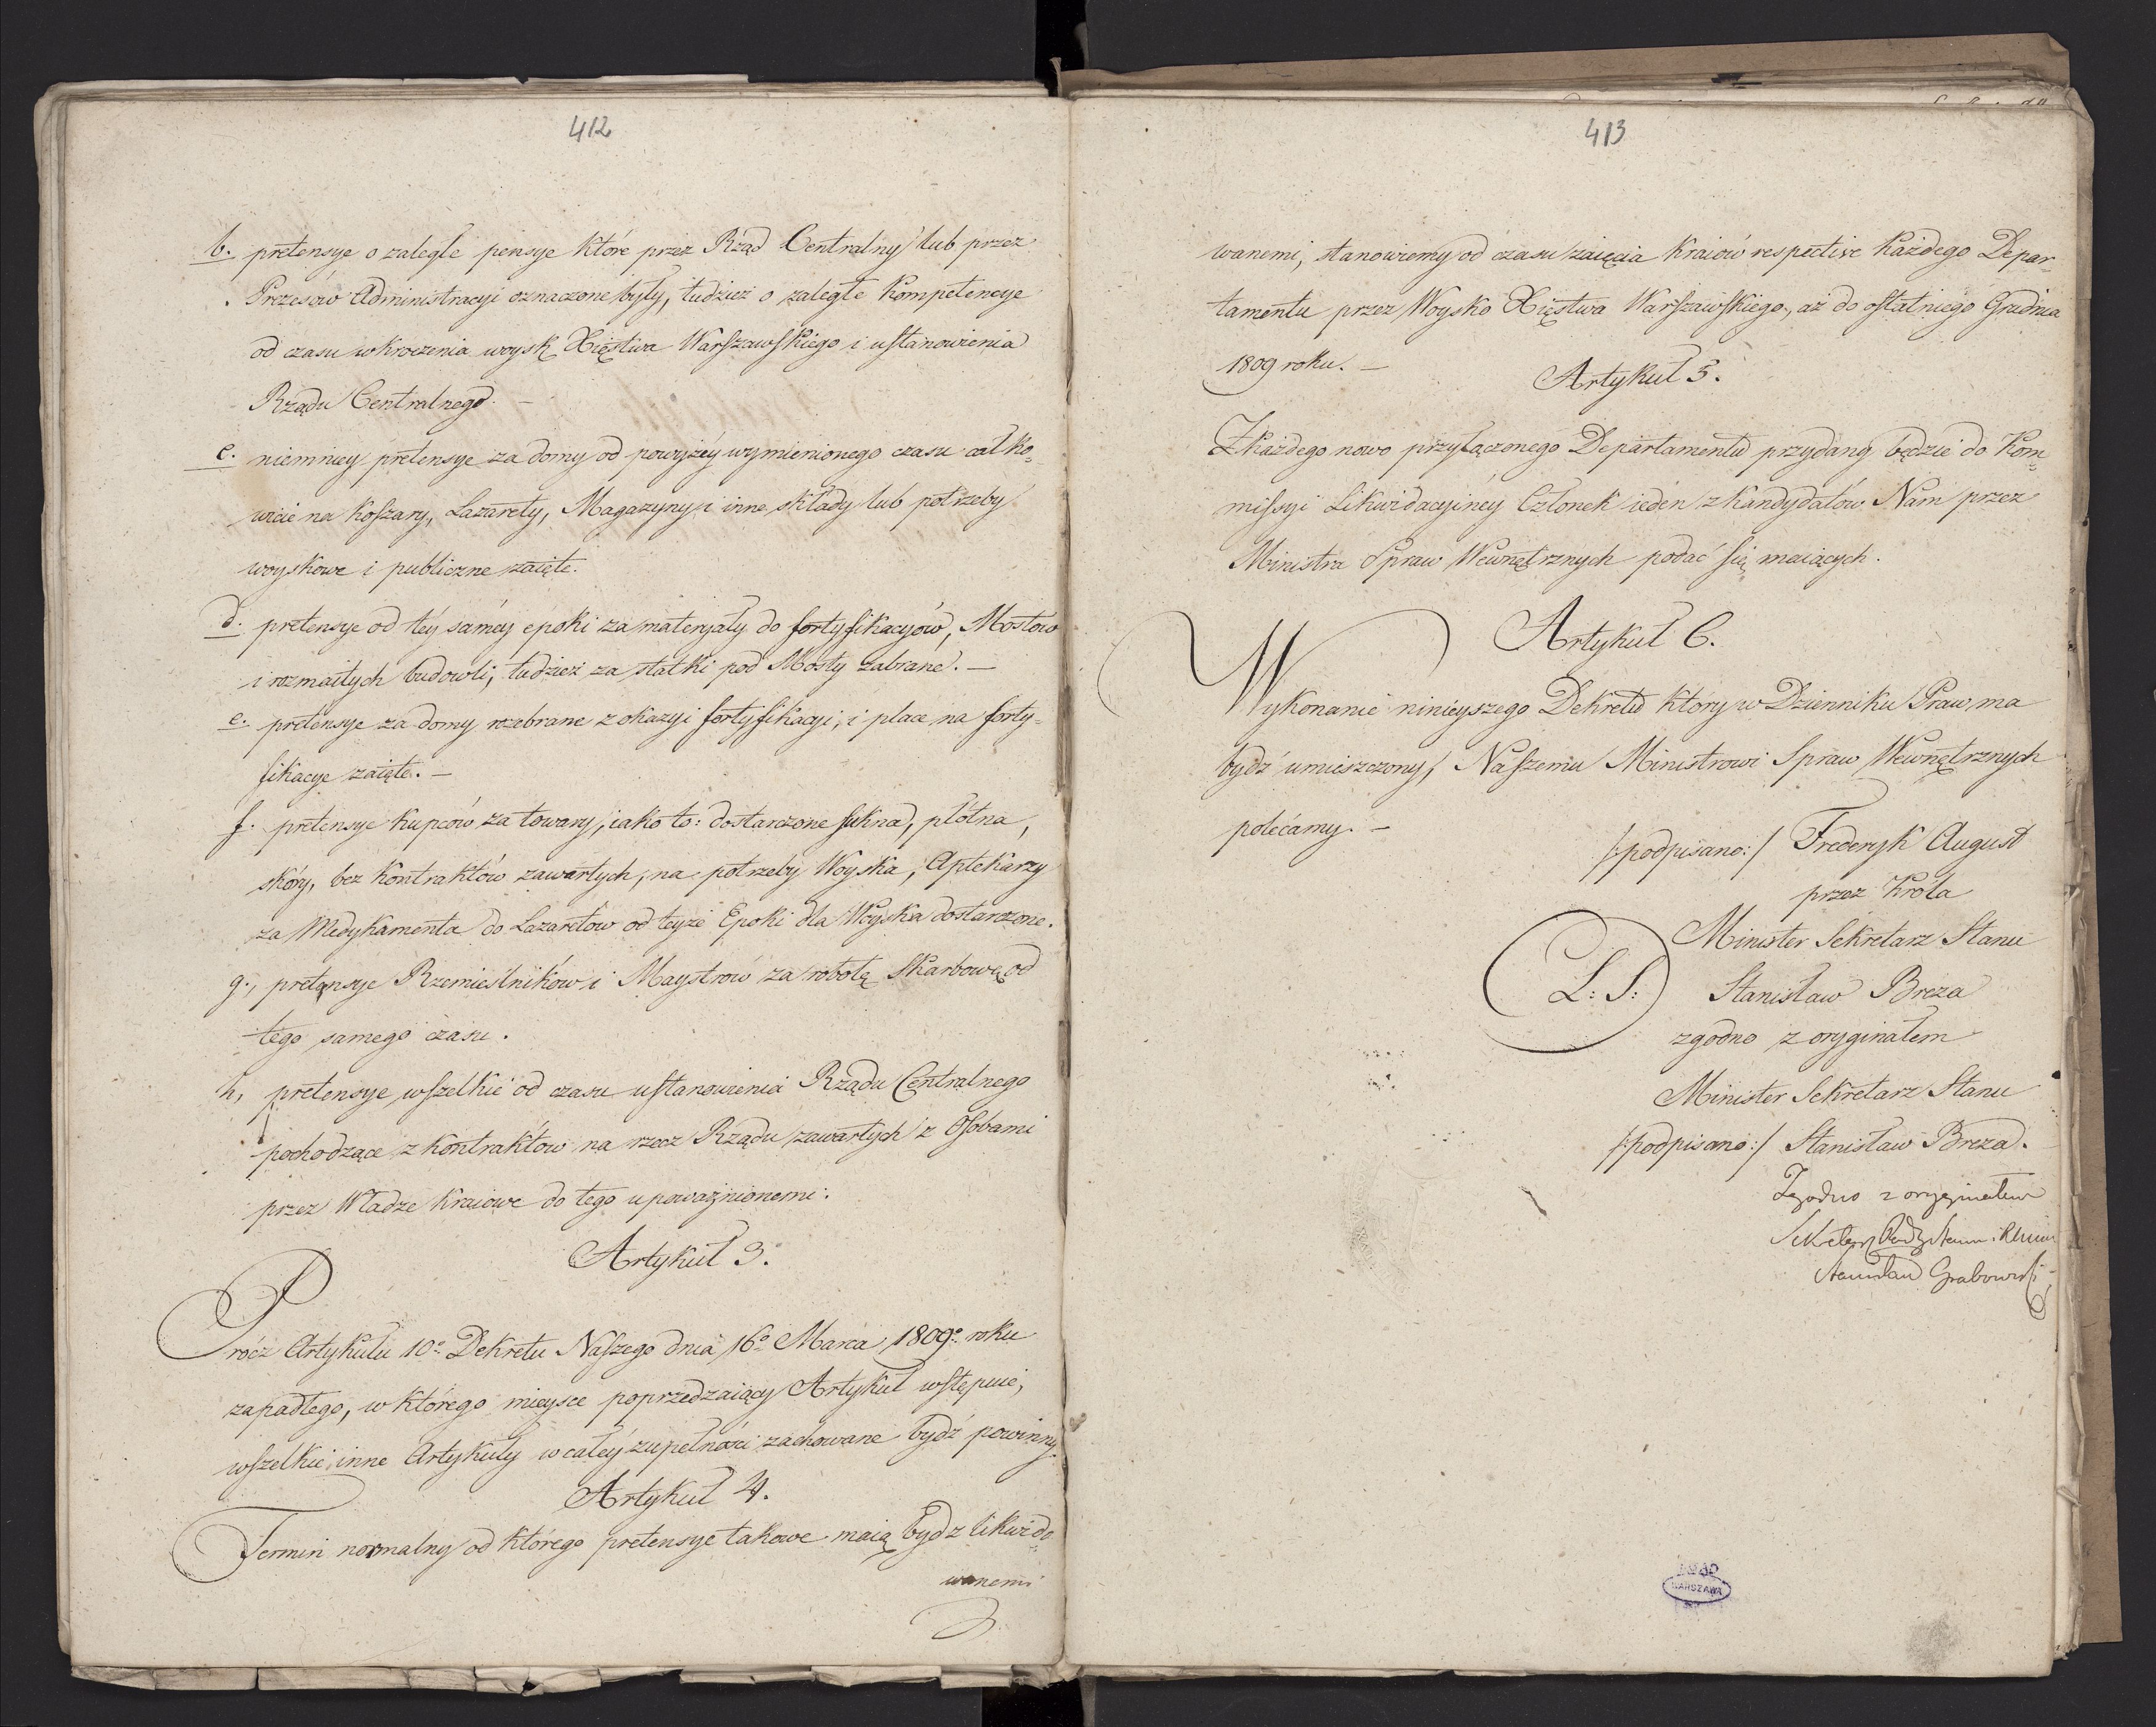 412
b. pretensye o zaległe pensye które przez Rząd Centralny lub przez
Prezesów Administracyi oznaczone były, tudzież o zaległe kompetencye
od czasu wkroczenia woysk Xięstwa Warszawskiego i ustanowienia
Rządu Centralnego. —
c. niemniey pretensye za domy od powyżéy wymienionego czasu całko=
wicie na koszary, Lazarety, Magazyny i inne składy lub potrzeby
woyskowe i publiczne zaięte.
d. pretensye od téy saméy epoki za materyały do fortyfikacyów, Mostów
i rozmaitych budowli, tudzież za statki pod Mosty zabrane. —
e. pretensye za domy rozebrane z okazyi fortyfikacyi, i place na forty=
fikacye zaięte. —
f. pretensye kupców za towary, iako to: dostarczone sukna, płótna,
skóry, bez kontraktów zawartych, na potrzeby Woyska, Aptekarzy
za Medykamenta do Lazaretów od teyże Epoki dla Woyska dostarczone.
g., pretensye Rzemieślników i Maystrów za robotę Skarbową od
tego samego czasu.
h, pretensye wszelkie od czasu ustanowienia Rządu Centralnego
pochodzące z kontraktów na rzecz Rządu zawartych z Osobami
przez Władze kraiowe do tego upoważnionemi.
Artykuł 3.
Prócz Artykułu 10º Dekretu Naszego dnia 16º Marca 1809º roku
zapadłego, w którego mieysce poprzedzaiący Artykuł wstępuie,
wszelkie inne Artykuły w całéy zupełności zachowane bydź powinny.
Artykuł 4.
Termin normalny od którego pretensye takowe maią bydz likwido=
wanemi
413
wanemi, stanowiemy od czasu zaięcia kraiów respective każdego Depar=
tamentu przez Woysko Xięstwa Warszawskiego, aż do ostatniego Grudnia
1809 roku. —
Artykuł 5.
Z każdego nowo przyłączonego Departamentu przydany będzie do Kom=
missyi Likwidacyinéy Członek ieden z kandydatów Nam przez
Ministra Spraw Wewnętrznych podać się maiących.
Artykuł 6.
Wykonanie ninieyszego Dekretu który w Dzienniku Praw ma
bydź umieszczony, Naszemu Ministrowi Spraw Wewnętrznych
polecamy. —
/:podpisano:/ Frederyk August
przez Króla
Minister Sekretarz Stanu
L: S: Stanisław Breza
zgodno z oryginałem
Minister Sekretarz Stanu
/:podpisano:/ Stanisław Breza.
Zgodno z oryginałem
Sekretarz Rady Stanu i
Stanisław Grabowski
WARSZAWA